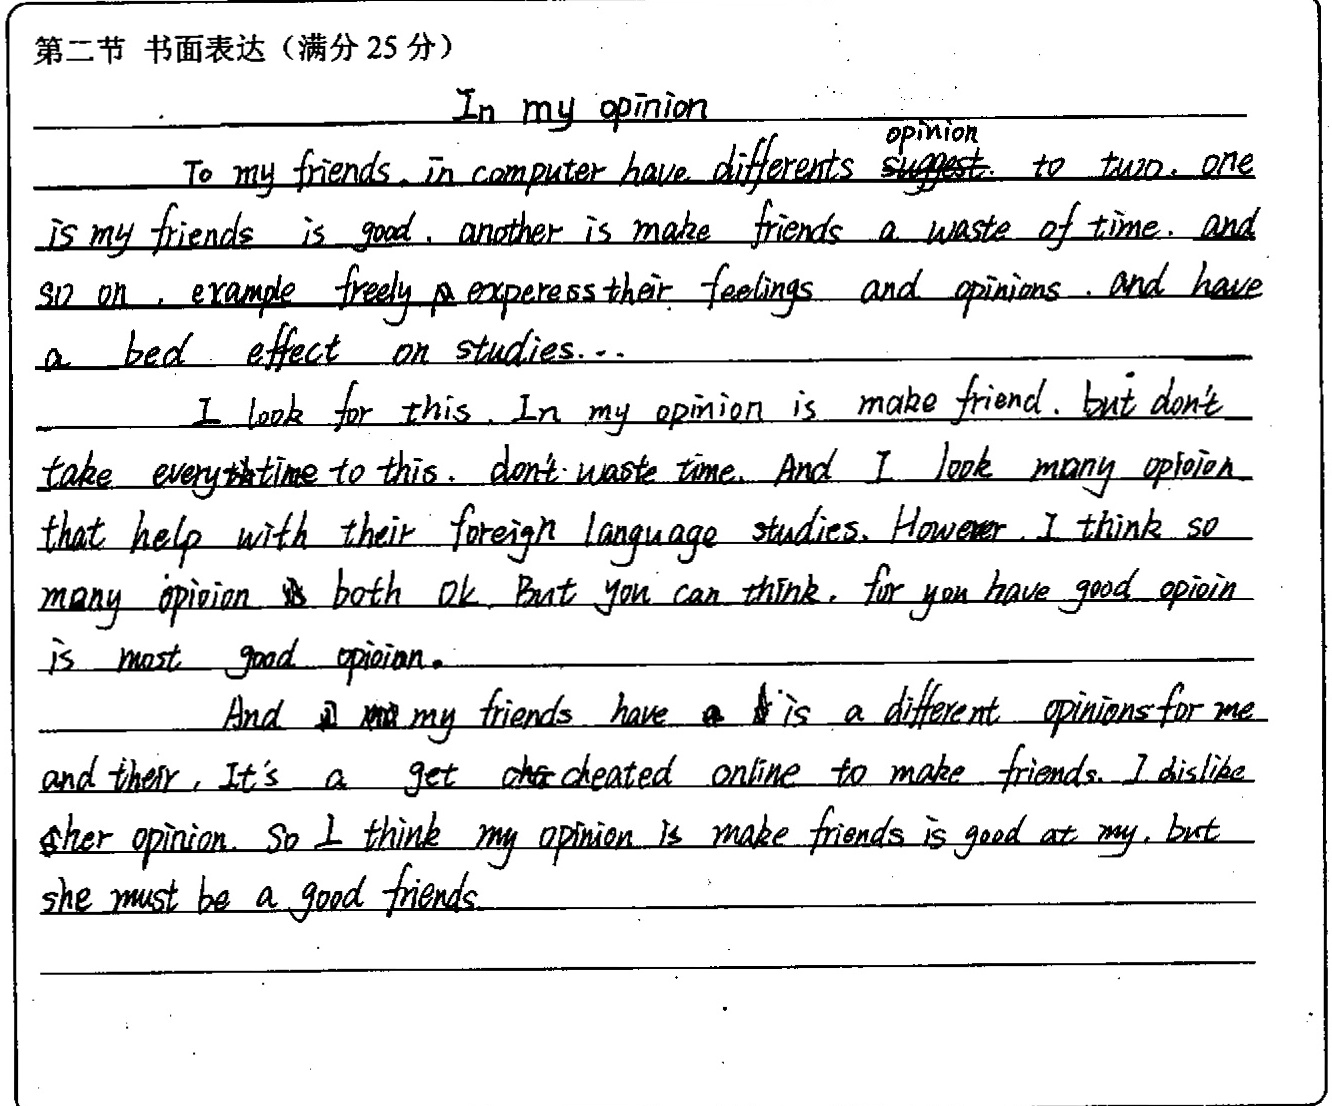 第二节 书面表达（满分25分）
In my opinion
opinion
To my friends. in computer have differents suggest. to two. one
is my friends is good. another is make friends a waste of time. and
so on. example freely experess their feelings and opinions. and have
a bed effect on studies...
I look for this. In my opinion is make friend. but don't
take everytime to this. don't waste time. And I look many opioion
that help with their foreign language studies. However. I think so
many opioion both ok. But you can think. for you have good opioin
is most good opioion.
And my friends have is a different opinions for me
and their, It's a get cheated online to make friends. I dislike
her opinion. So I think my opinion is make friends is good at my. but
she must be a good friends.